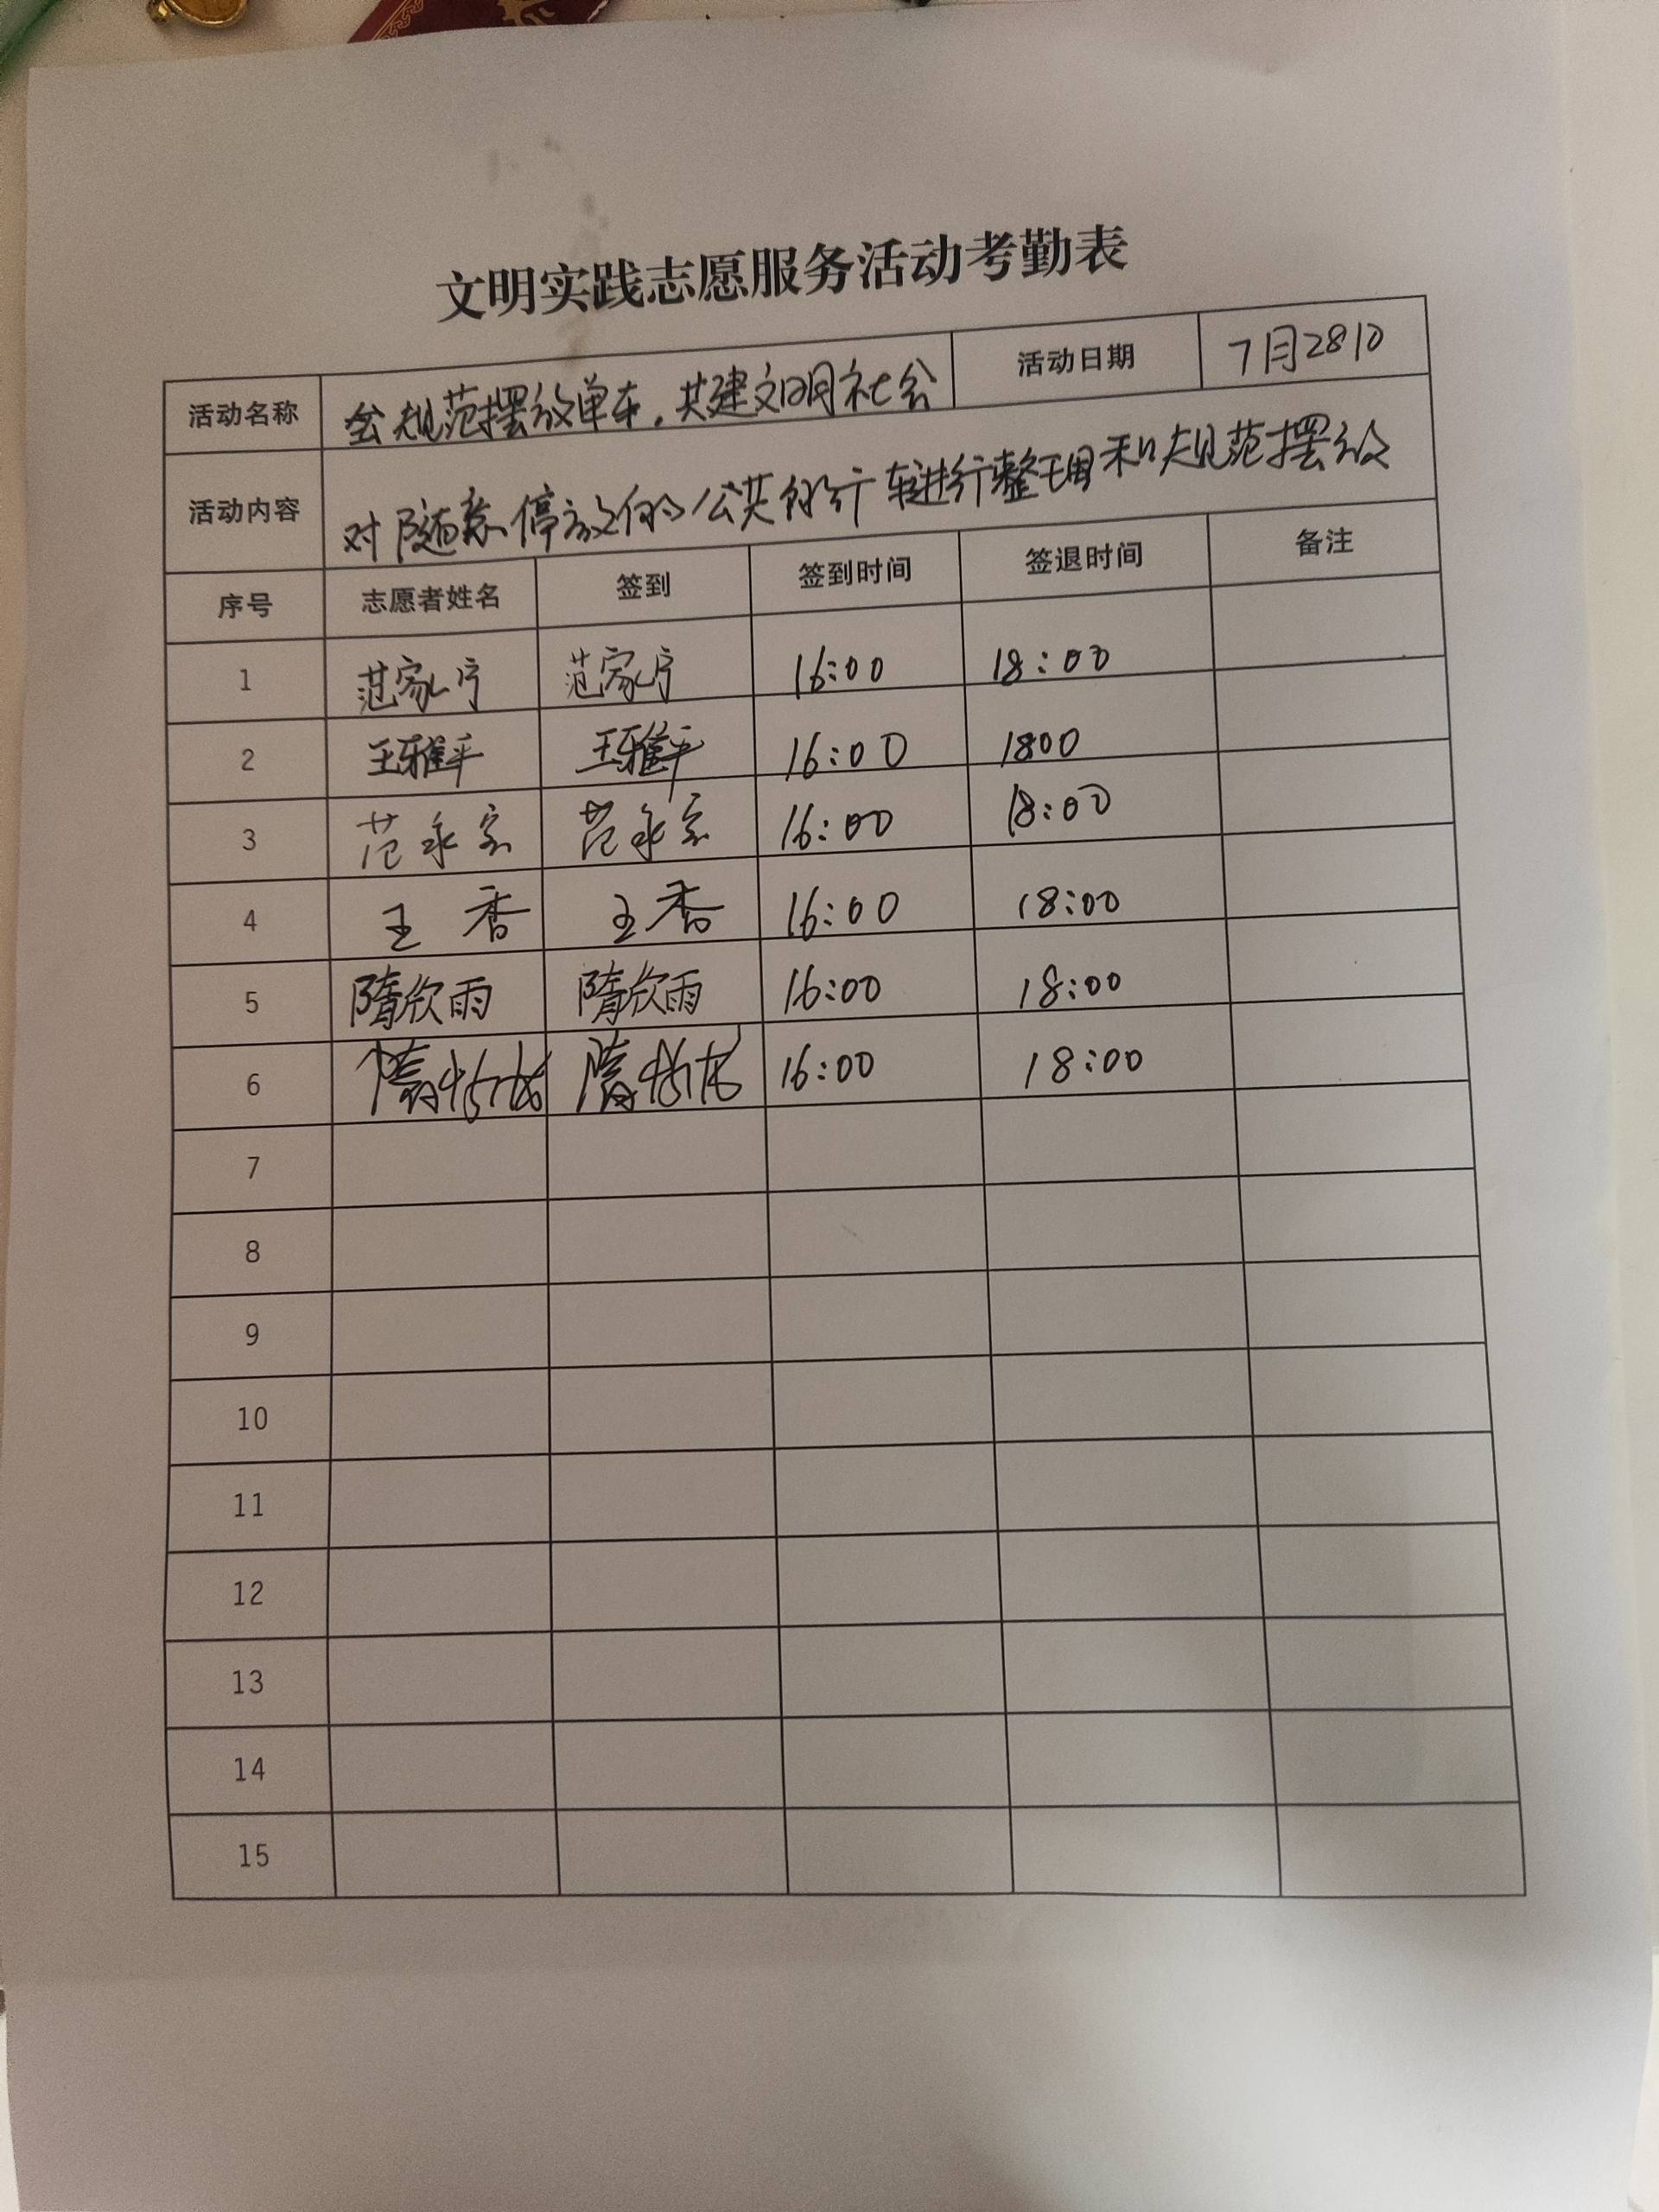 文明实践志愿服务活动考勤表
活动名称 规范摆放单车,共建文明社会 活动日期 7月28日
活动内容 对随意停放的公共自行车进行整理和规范摆放
序号 志愿者姓名 签到 签到时间 签退时间 备注
1 范家宁 范家宁 16:00 18:00
2 王雅平 王雅平 16:00 1800
3 范永宏 范永宏 16:00 18:00
4 王香 王香 16:00 18:00
5 隋欣雨 隋欣雨 16:00 18:00
6 16:00 18:00
7
8
9
10
11
12
13
14
15